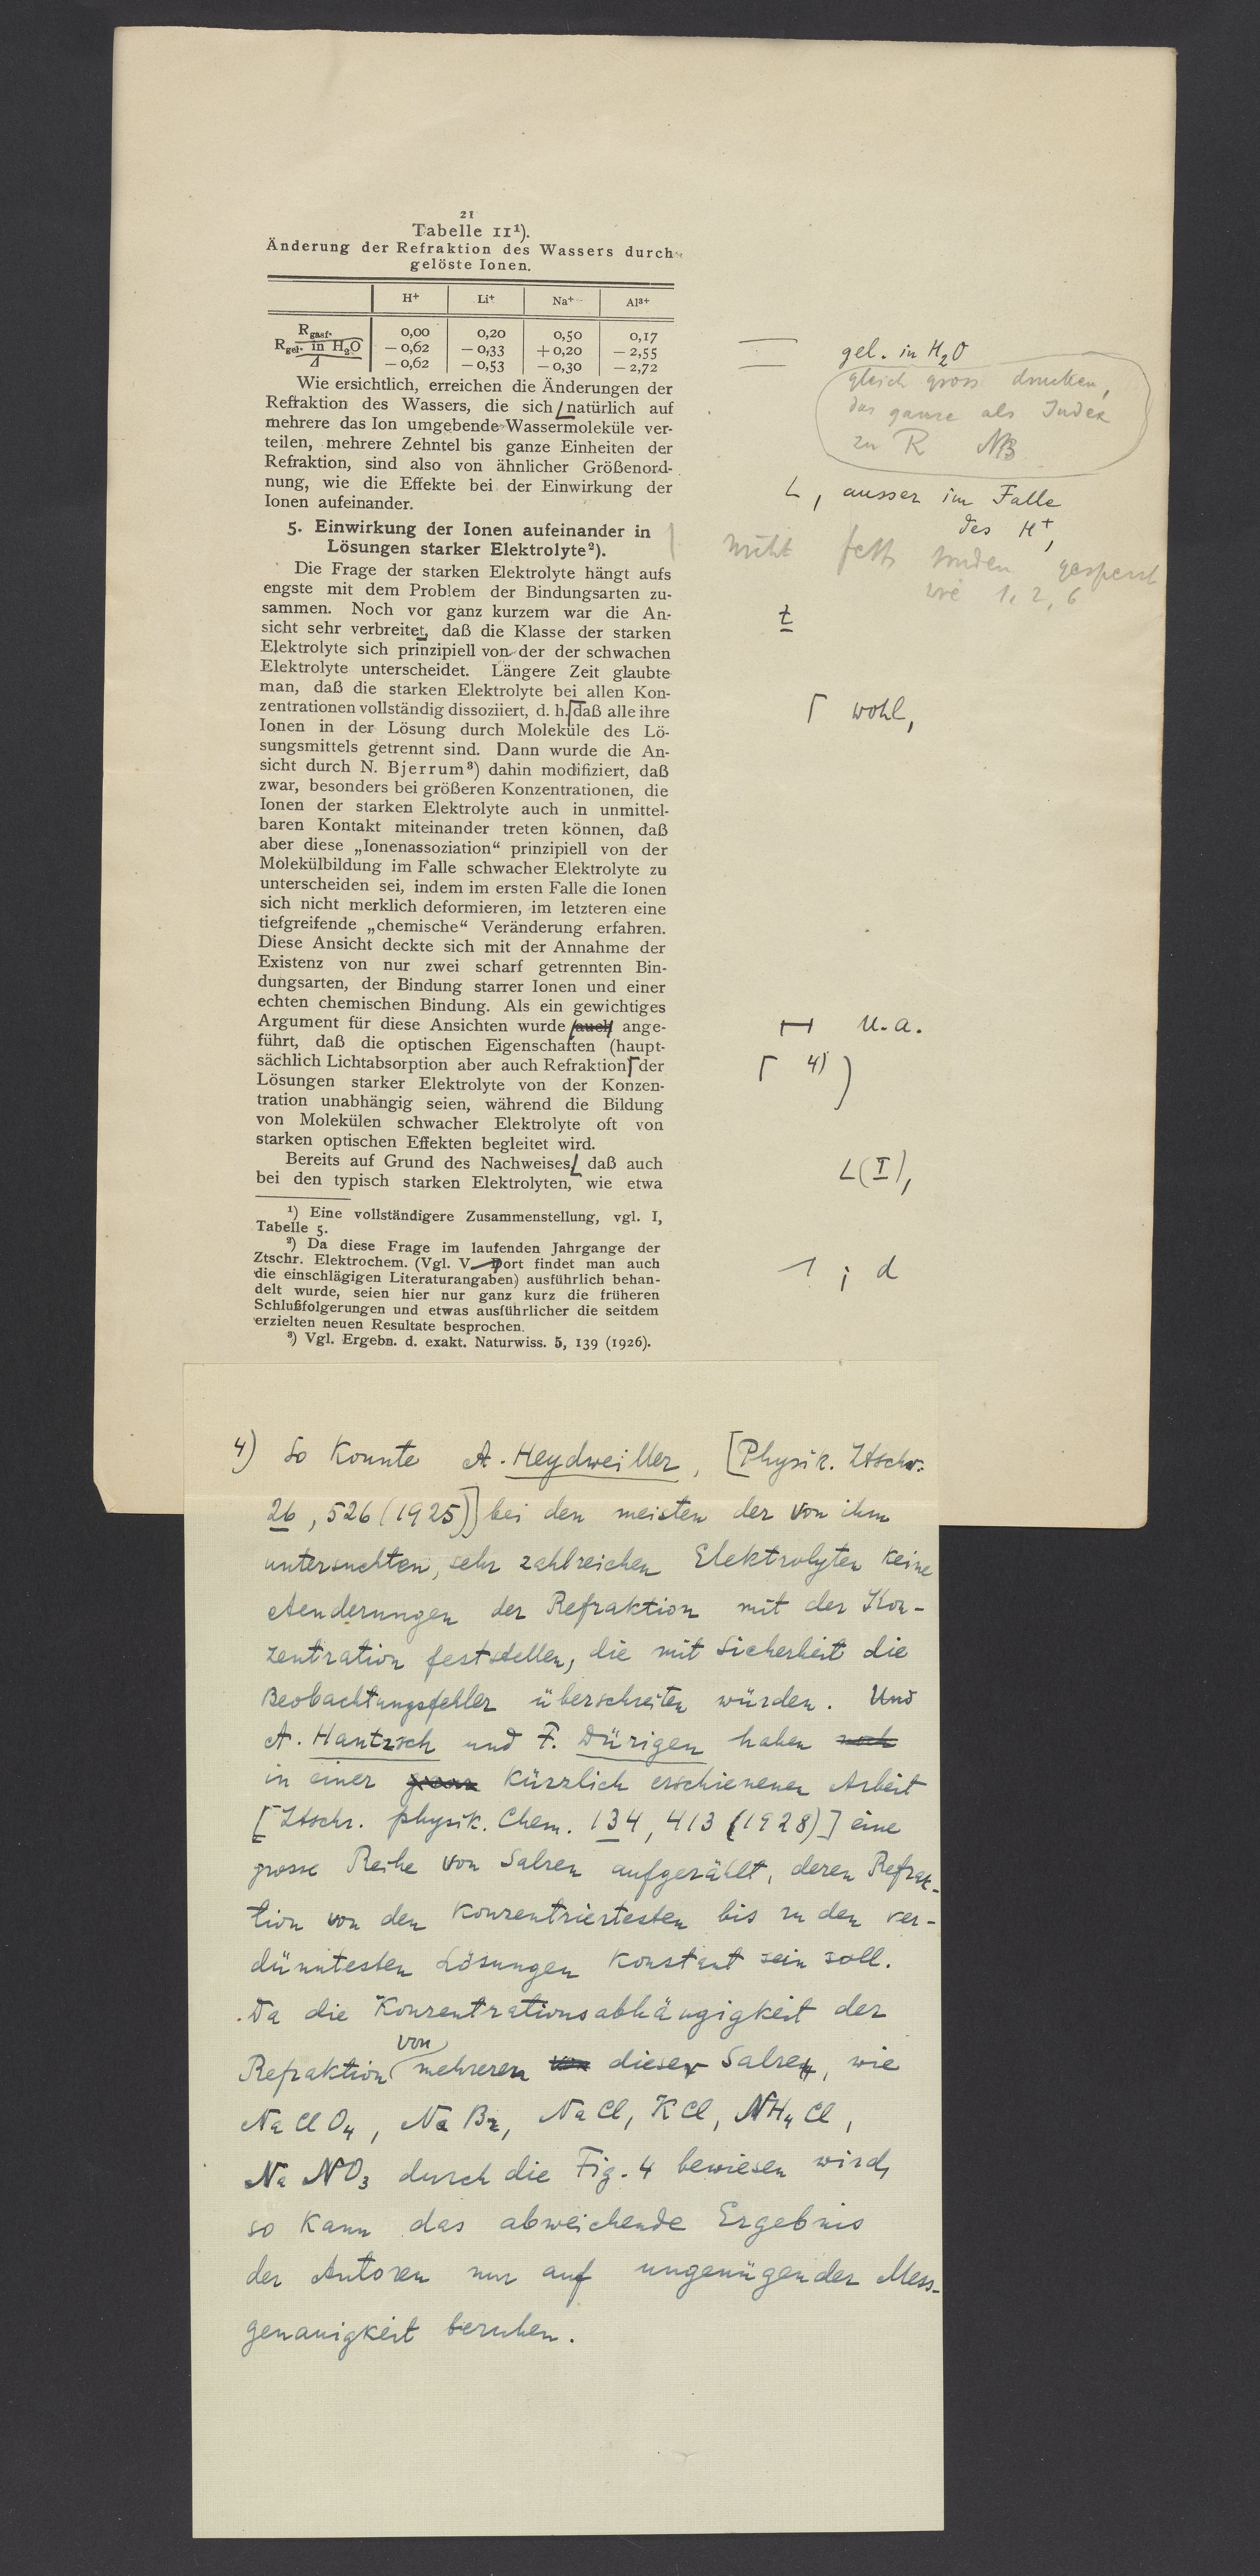 21
Tabelle 11¹).
Änderung der Refraktion des Wassers durch
gelöste Ionen.
H⁺ Li⁺ Na⁺ Al³⁺
R gasf. 0,00 0,20 0,50 0,17
R gel. in H₂O — 0,62 — 0,33 + 0,20 — 2,55
Δ — 0,62 — 0,53 — 0,30 — 2,72
gel. in H₂O
gleich gross drucken,
das ganze als Index
zu R NB
Wie ersichtlich, erreichen die Änderungen der
Refraktion des Wassers, die sich natürlich auf
mehrere das Ion umgebende Wassermoleküle ver-
teilen, mehrere Zehntel bis ganze Einheiten der
Refraktion, sind also von ähnlicher Größenord-
nung, wie die Effekte bei der Einwirkung der
Ionen aufeinander.
, ausser im Falle
des H⁺,
5. Einwirkung der Ionen aufeinander in
Lösungen starker Elektrolyte²).
nicht fett sondern gesperrt
wie 1, 2, 6
Die Frage der starken Elektrolyte hängt aufs
engste mit dem Problem der Bindungsarten zu-
sammen. Noch vor ganz kurzem war die An-
sicht sehr verbreitet, daß die Klasse der starken
t
Elektrolyte sich prinzipiell von der der schwachen
Elektrolyte unterscheidet. Längere Zeit glaubte
man, daß die starken Elektrolyte bei allen Kon-
zentrationen vollständig dissoziiert, d. h. daß alle ihre
wohl,
Ionen in der Lösung durch Moleküle des Lö-
sungsmittels getrennt sind. Dann wurde die An-
sicht durch N. Bjerrum³) dahin modifiziert, daß
zwar, besonders bei größeren Konzentrationen, die
Ionen der starken Elektrolyte auch in unmittel-
baren Kontakt miteinander treten können, daß
aber diese „Ionenassoziation“ prinzipiell von der
Molekülbildung im Falle schwacher Elektrolyte zu
unterscheiden sei, indem im ersten Falle die Ionen
sich nicht merklich deformieren, im letzteren eine
tiefgreifende „chemische“ Veränderung erfahren.
Diese Ansicht deckte sich mit der Annahme der
Existenz von nur zwei scharf getrennten Bin-
dungsarten, der Bindung starrer Ionen und einer
echten chemischen Bindung. Als ein gewichtiges
Argument für diese Ansichten wurde auch ange-
u. a.
führt, daß die optischen Eigenschaften (haupt-
sächlich Lichtabsorption aber auch Refraktion der
4) )
Lösungen starker Elektrolyte von der Konzen-
tration unabhängig seien, während die Bildung
von Molekülen schwacher Elektrolyte oft von
starken optischen Effekten begleitet wird.
Bereits auf Grund des Nachweises daß auch
(I),
bei den typisch starken Elektrolyten, wie etwa
¹) Eine vollständigere Zusammenstellung, vgl. I,
Tabelle 5.
²) Da diese Frage im laufenden Jahrgange der
Ztschr. Elektrochem. (Vgl. V. Dort findet man auch
; d
die einschlägigen Literaturangaben) ausführlich behan-
delt wurde, seien hier nur ganz kurz die früheren
Schlußfolgerungen und etwas ausführlicher die seitdem
erzielten neuen Resultate besprochen.
³) Vgl. Ergebn. d. exakt. Naturwiss. 5, 139 (1926).
4) So konnte A. Heydweiller, [Physik. Ztschr.
26, 526 (1925)] bei den meisten der von ihm
untersuchten, sehr zahlreichen Elektrolyten keine
Aenderungen der Refraktion mit der Kon-
zentration feststellen, die mit Sicherheit die
Beobachtungsfehler überschreiten würden. Und
A. Hantzsch und F. Dürigen haben noch
in einer ganz kürzlich erschienenen Arbeit
[Ztschr. physik. Chem. 134, 413 (1928)] eine
grosse Reihe von Salzen aufgezählt, deren Refrak-
tion von den konzentriertesten bis zu den ver-
dünntesten Lösungen konstant sein soll.
Da die Konzentrationsabhängigkeit der
von
Refraktion mehrerer von dieser Salze, wie
NaClO₄, NaBr, NaCl, KCl, NH₄Cl,
NaNO₃ durch die Fig. 4 bewiesen wird,
so kann das abweichende Ergebnis
der Autoren nur auf ungenügender Mess-
genauigkeit beruhen.